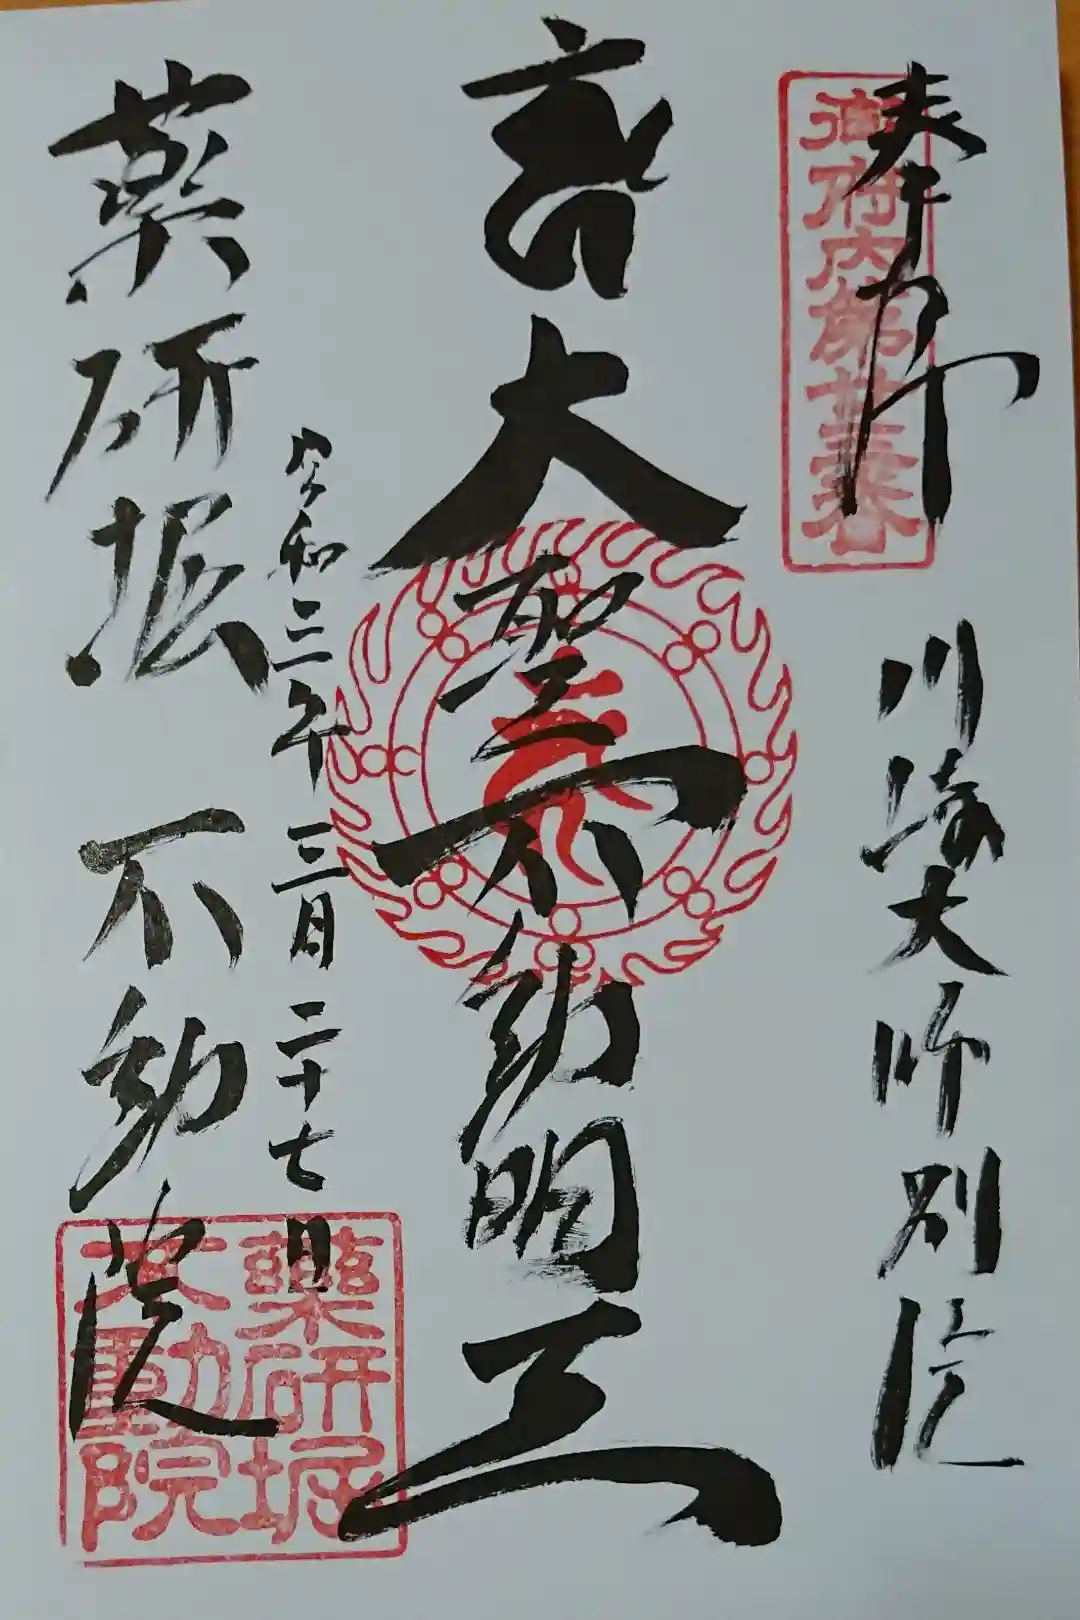 奉拝
御府内第廿三番
川崎大師別院
大聖不動明王
令和三年三月二十七日
薬研堀 不動院
薬研堀
不動院